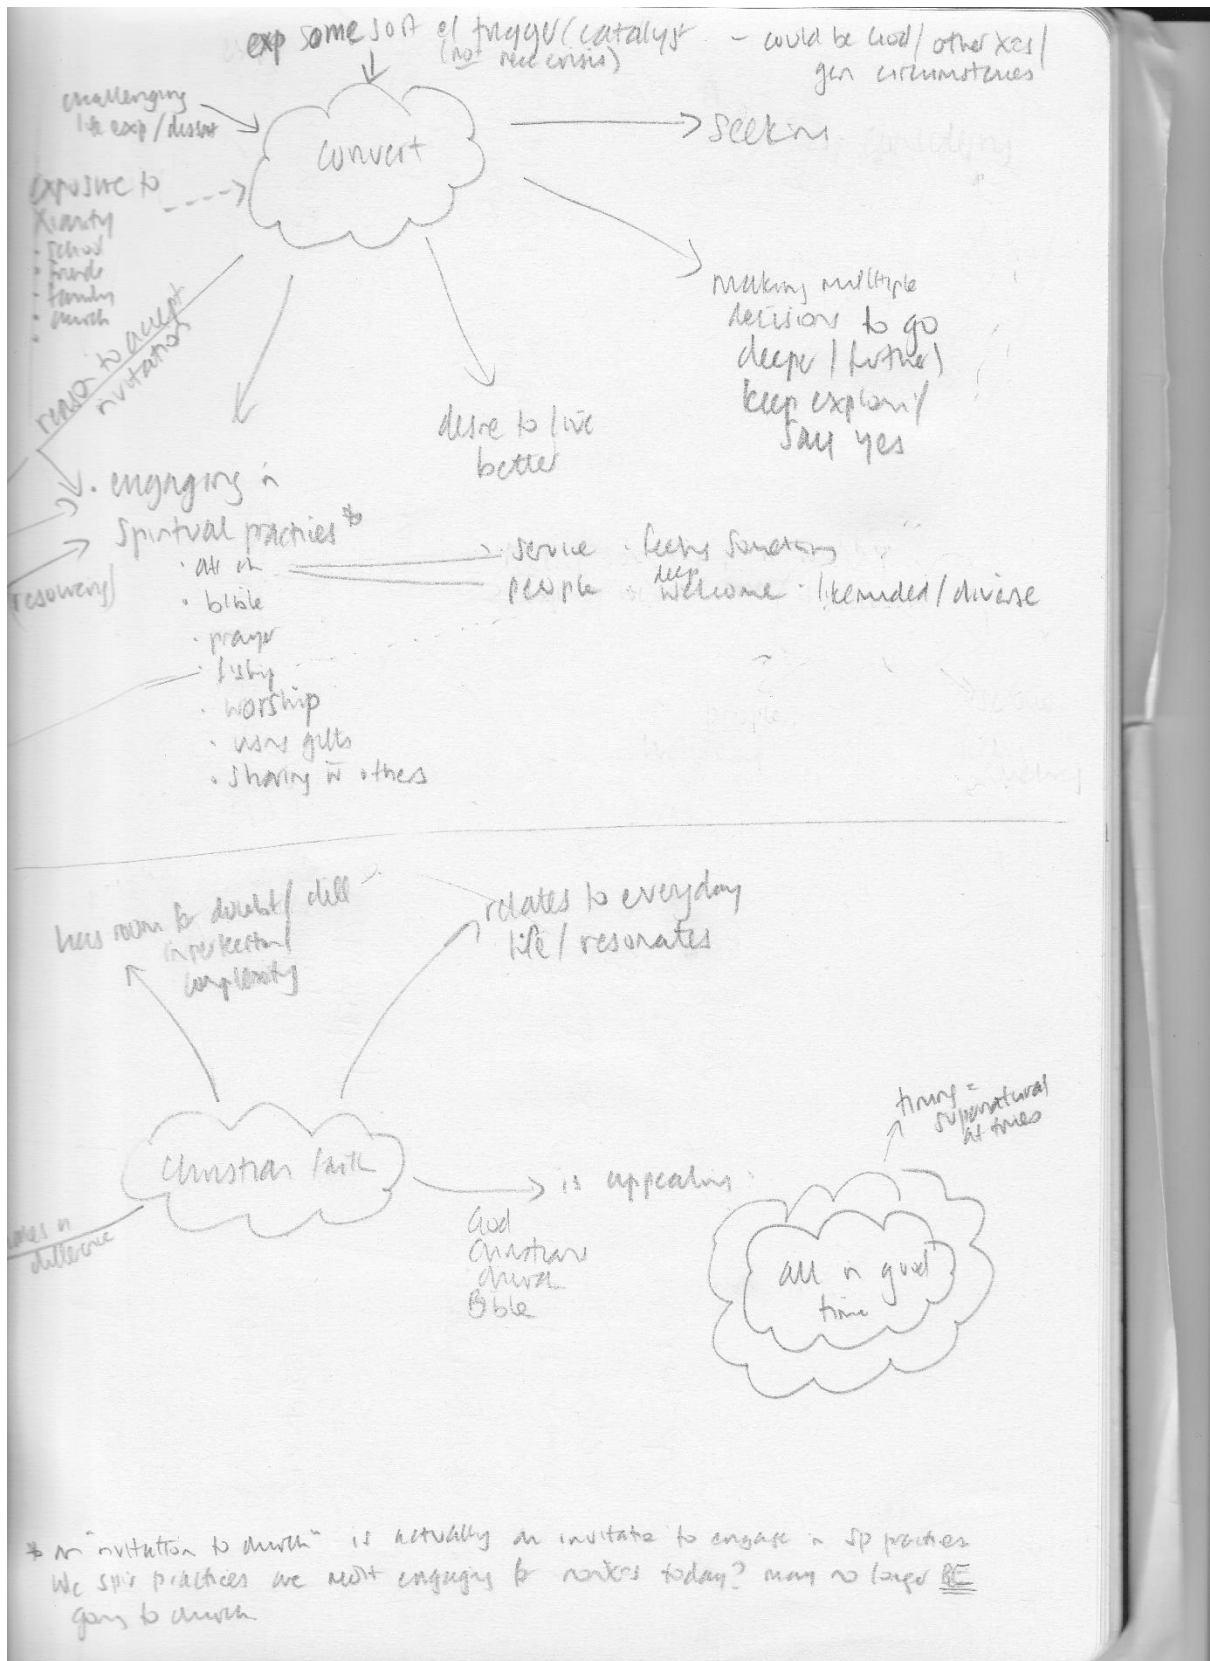 exp some sort of trigger/catalyst - could be God/other Xns/
(not nece crisis) gen circumstances
challenging
life exp/
convert
seeking
exposure to
Xianity
• school
• friends
• family
• church
•
reason to accept
invitation
making multiple
decisions to go
deeper/further/
keep explori/
say yes
desire to live
better
• engaging in
spiritual practices *
• att ch
• bible
• prayer
•
• worship
• using gifts
• sharing w̄ others
service • feeling something
people • deep welcome • likeminded/diverse
has room for doubt/
imperfection/
complexity
relates to everyday
life/resonates
Christian faith
difference
is appealing:
God
Christians
church
Bible
timing =
supernatural
at times
all in good
time
* an "invitation to church" is actually an invitatn to engage in sp practices
spir practices are most engaging for today? may no longer BE
going to church